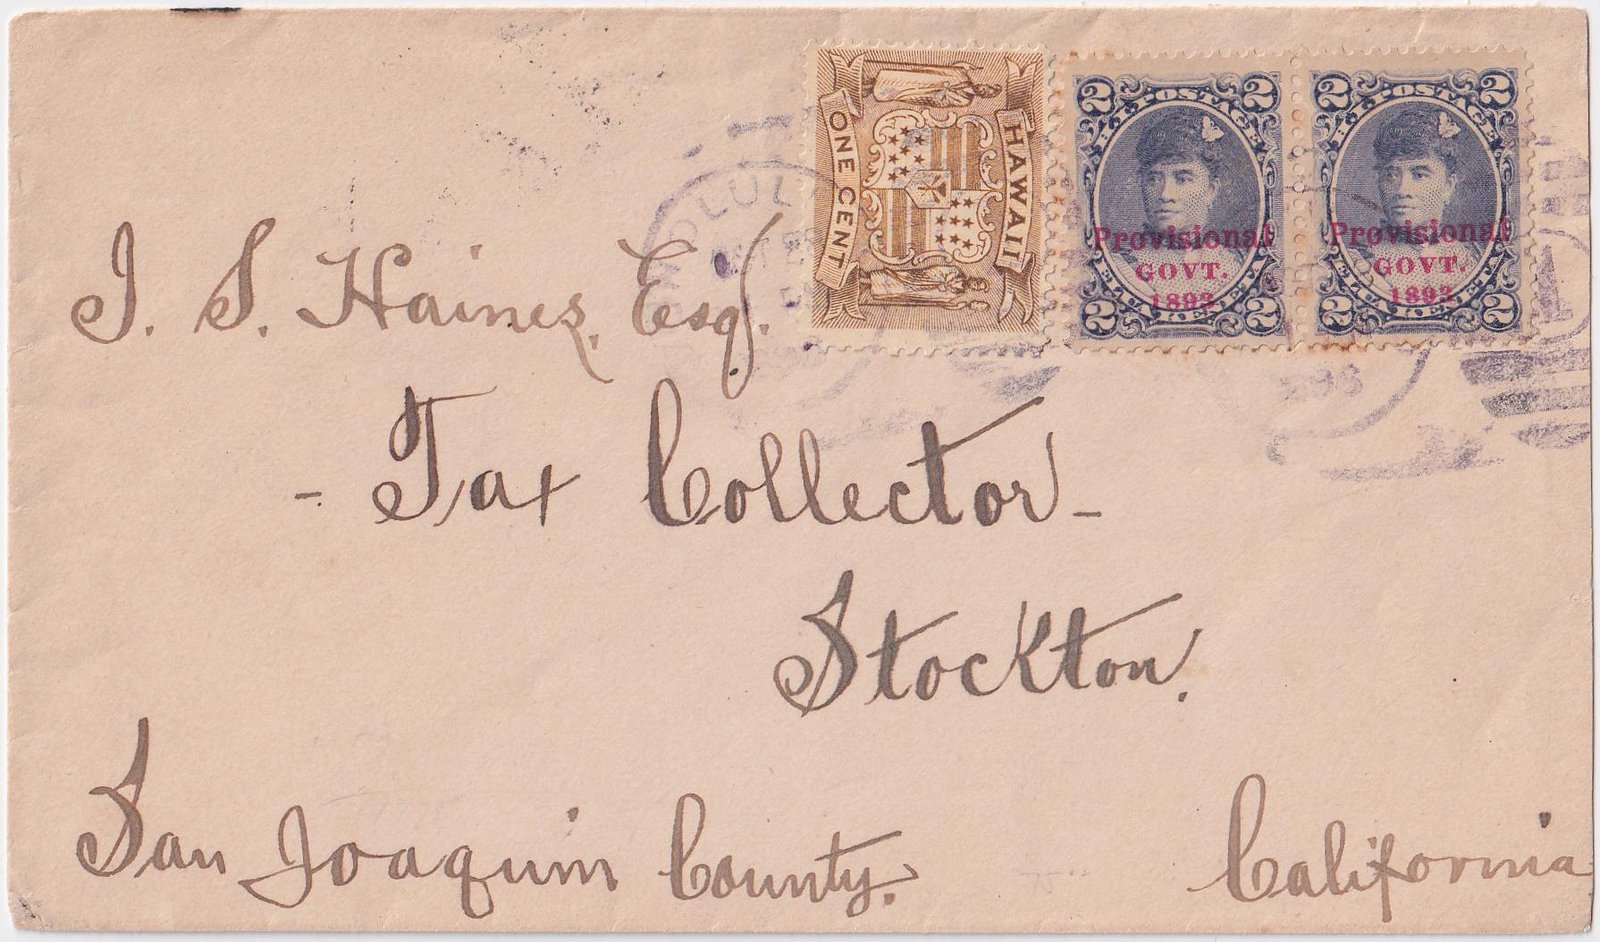 HAWAII
ONE CENT
2 POSTAGE 2
Provisional
GOVT.
1893
2 2
2 POSTAGE 2
Provisional
GOVT.
1893
2 2
J. S. Haines, Esq.
- Tax Collector -
Stockton.
San Joaquin County.
California